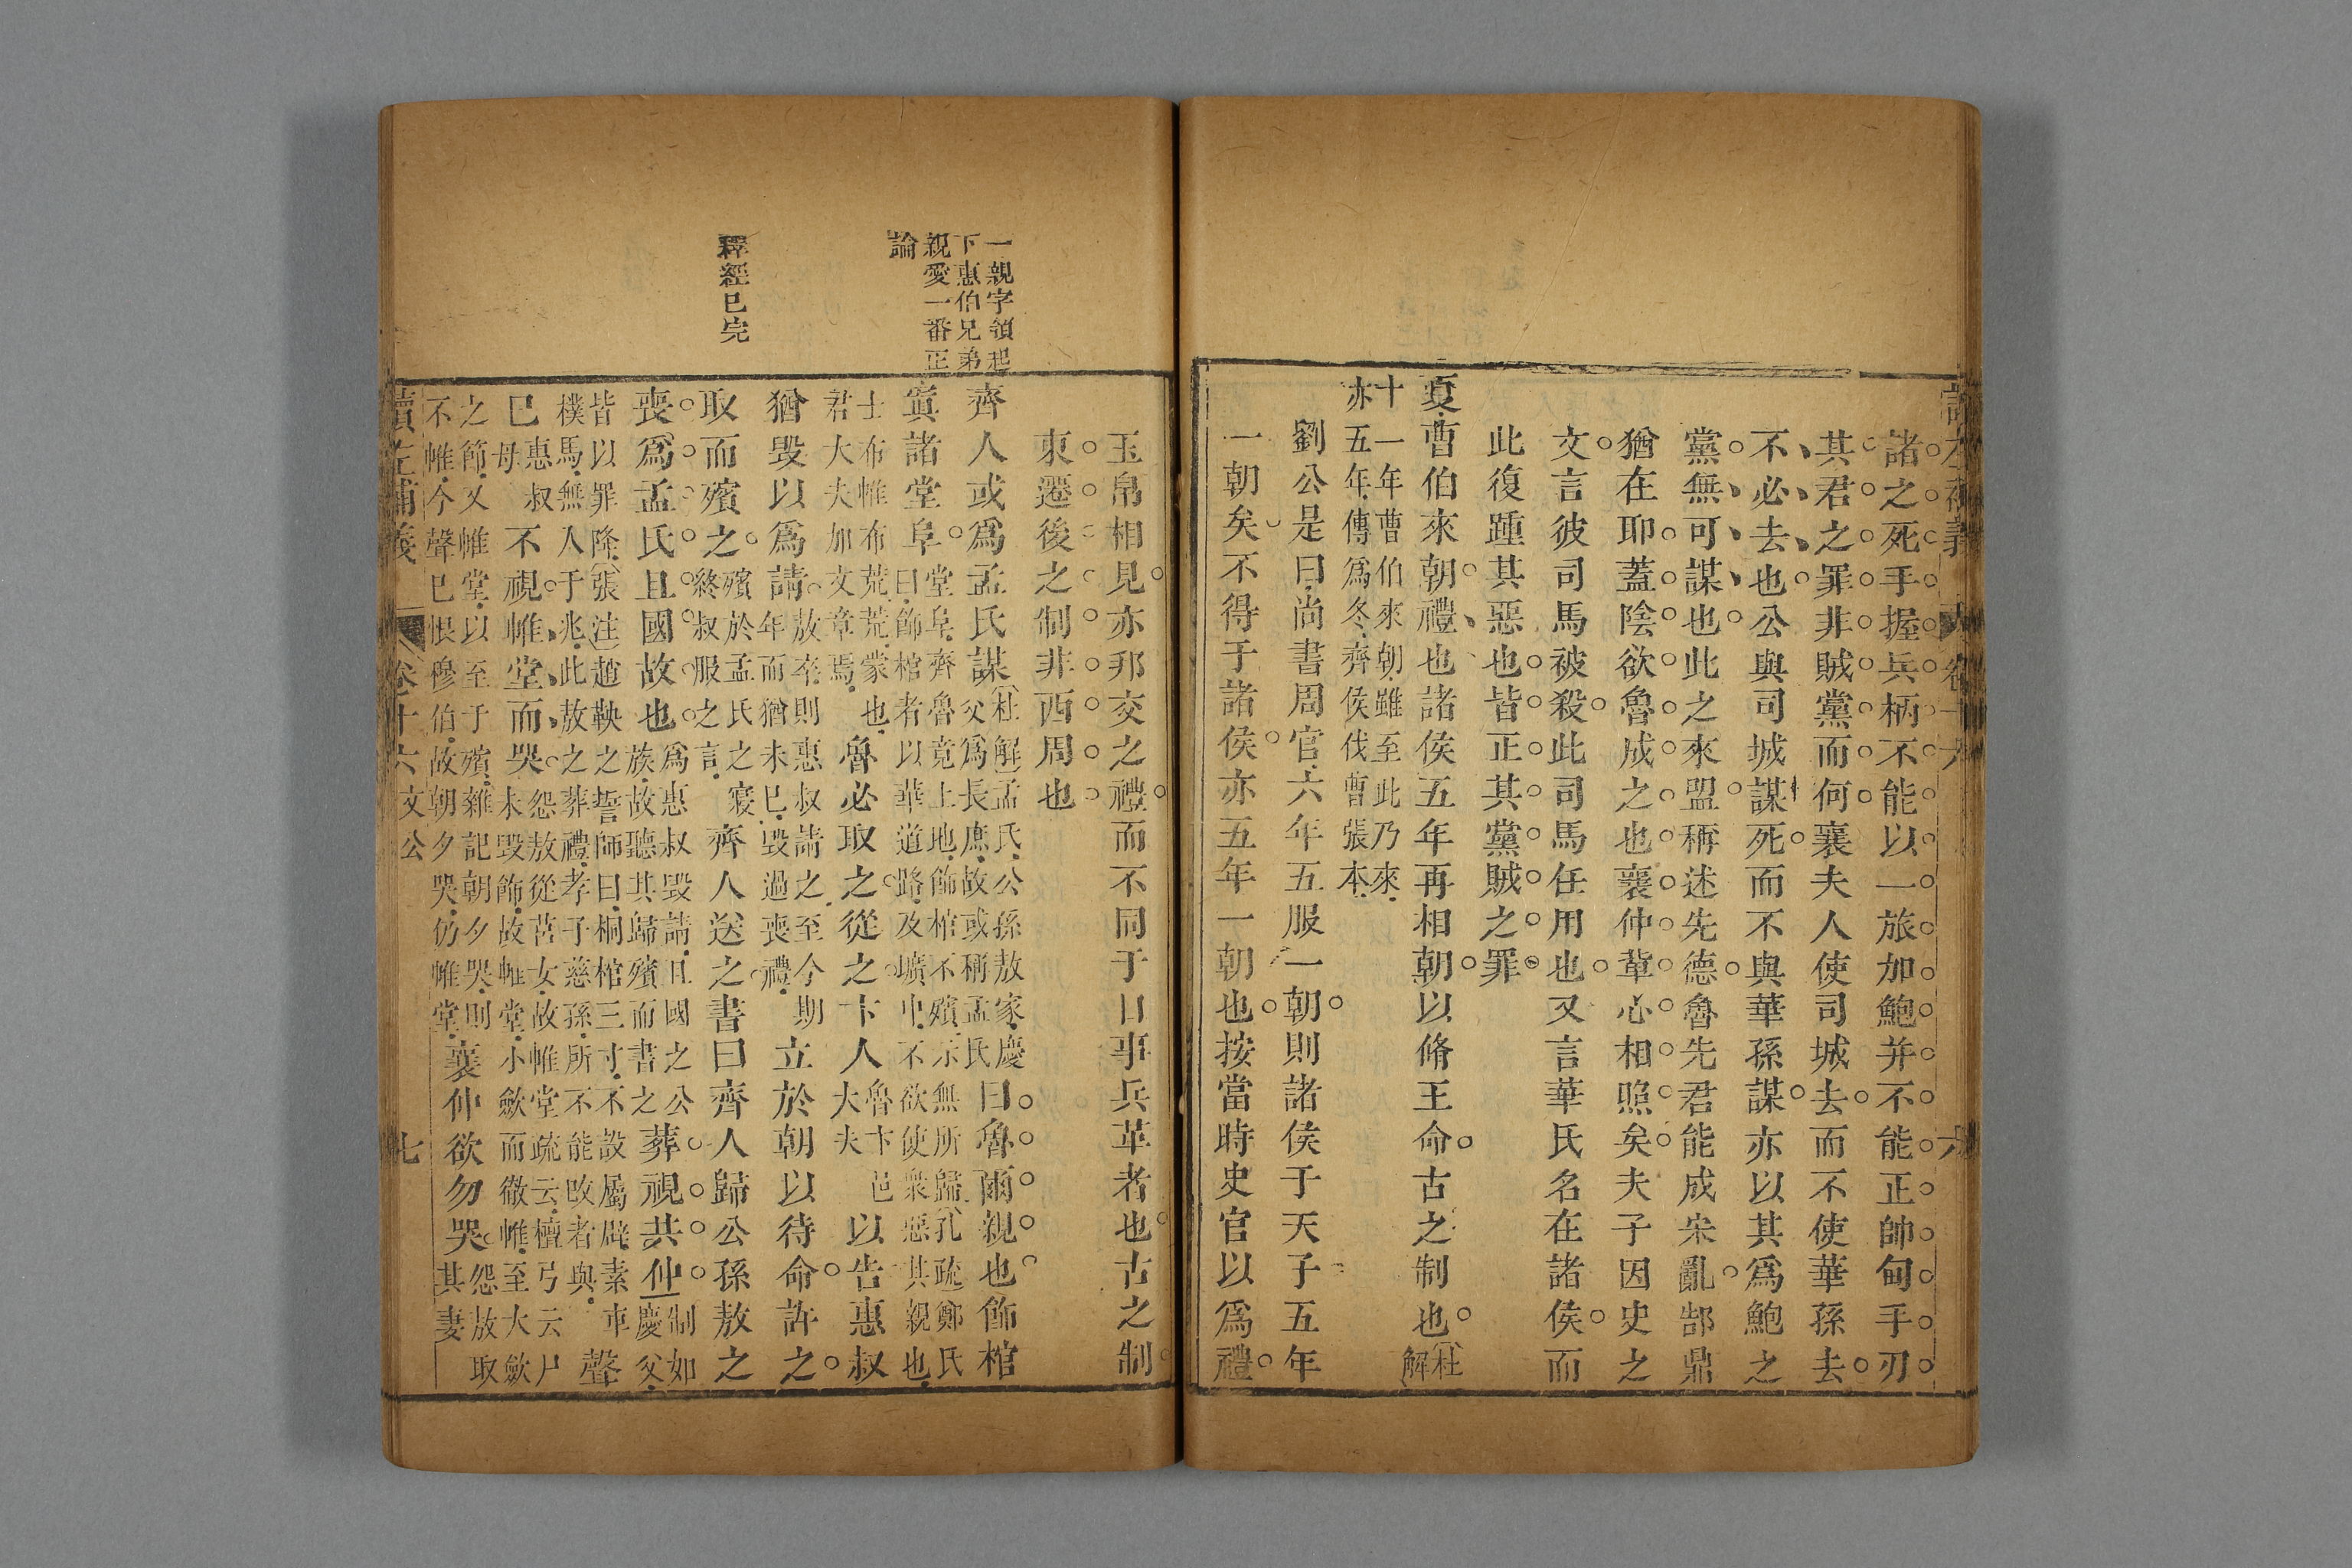 諸之死手握兵柄不能以一旅加鮑并不能正帥甸手刃
其君之罪非賊黨而何襄夫人使司城去而不使華孫去
不必去也公與司城謀死而不與華孫謀亦以其為鮑之
黨無可謀也此之來盟稱述先德魯先君能成宋亂郜鼎
猶在耶蓋陰欲魯成之也襄仲輩心相照矣夫子因史之
文言彼司馬被殺此司馬任用也又言華氏名在諸侯而
此復踵其惡也皆正其黨賊之罪
夏曹伯來朝禮也諸侯五年再相朝以脩王命古之制也杜解
十一年曹伯來朝雖至此乃來
亦五年傳為冬齊侯伐曹張本
劉公是曰尚書周官六年五服一朝則諸侯于天子五年
一朝矣不得于諸侯亦五年一朝也按當時史官以為禮
玉帛相見亦邦交之禮而不同于日事兵革者也古之制
東遷後之制非西周也
一親字領起
下惠伯兄弟
親愛一番正
論
齊人或為孟氏謀杜解孟氏公孫敖家慶父為長庶故或稱孟氏曰魯爾親也飾棺
寘諸堂阜堂阜齊魯竟上地飾棺不殯示無所歸孔疏鄭氏曰飾棺者以華道路及壙中不欲使衆惡其親也
士布帷布荒荒蒙也君大夫加文章焉魯必取之從之卞人魯卞邑大夫以告惠叔
猶毀以為請敖卒則惠叔請之至今期年而猶未已毀過喪禮立於朝以待命許之
釋經已完
取而殯之殯於孟氏之寢終叔服之言齊人送之書曰齊人歸公孫敖之
喪為孟氏且國故也為惠叔毀請且國之公族故聽其歸殯而書之葬視共仲制如慶父
皆以罪降張注趙鞅之誓師曰桐棺三寸不設屬辟素車樸馬無入于兆此敖之葬禮孝子慈孫所不能改者與聲
已惠叔母不視帷堂而哭怨敖從莒女故帷堂疏云檀弓云尸未毀飾故帷堂小歛而徹帷至大歛
之節又帷堂以至于殯雜記朝夕哭則不帷今聲已恨穆伯故朝夕哭仍帷堂襄仲欲勿哭怨敖取其妻
讀左補義
卷十六
文公
七